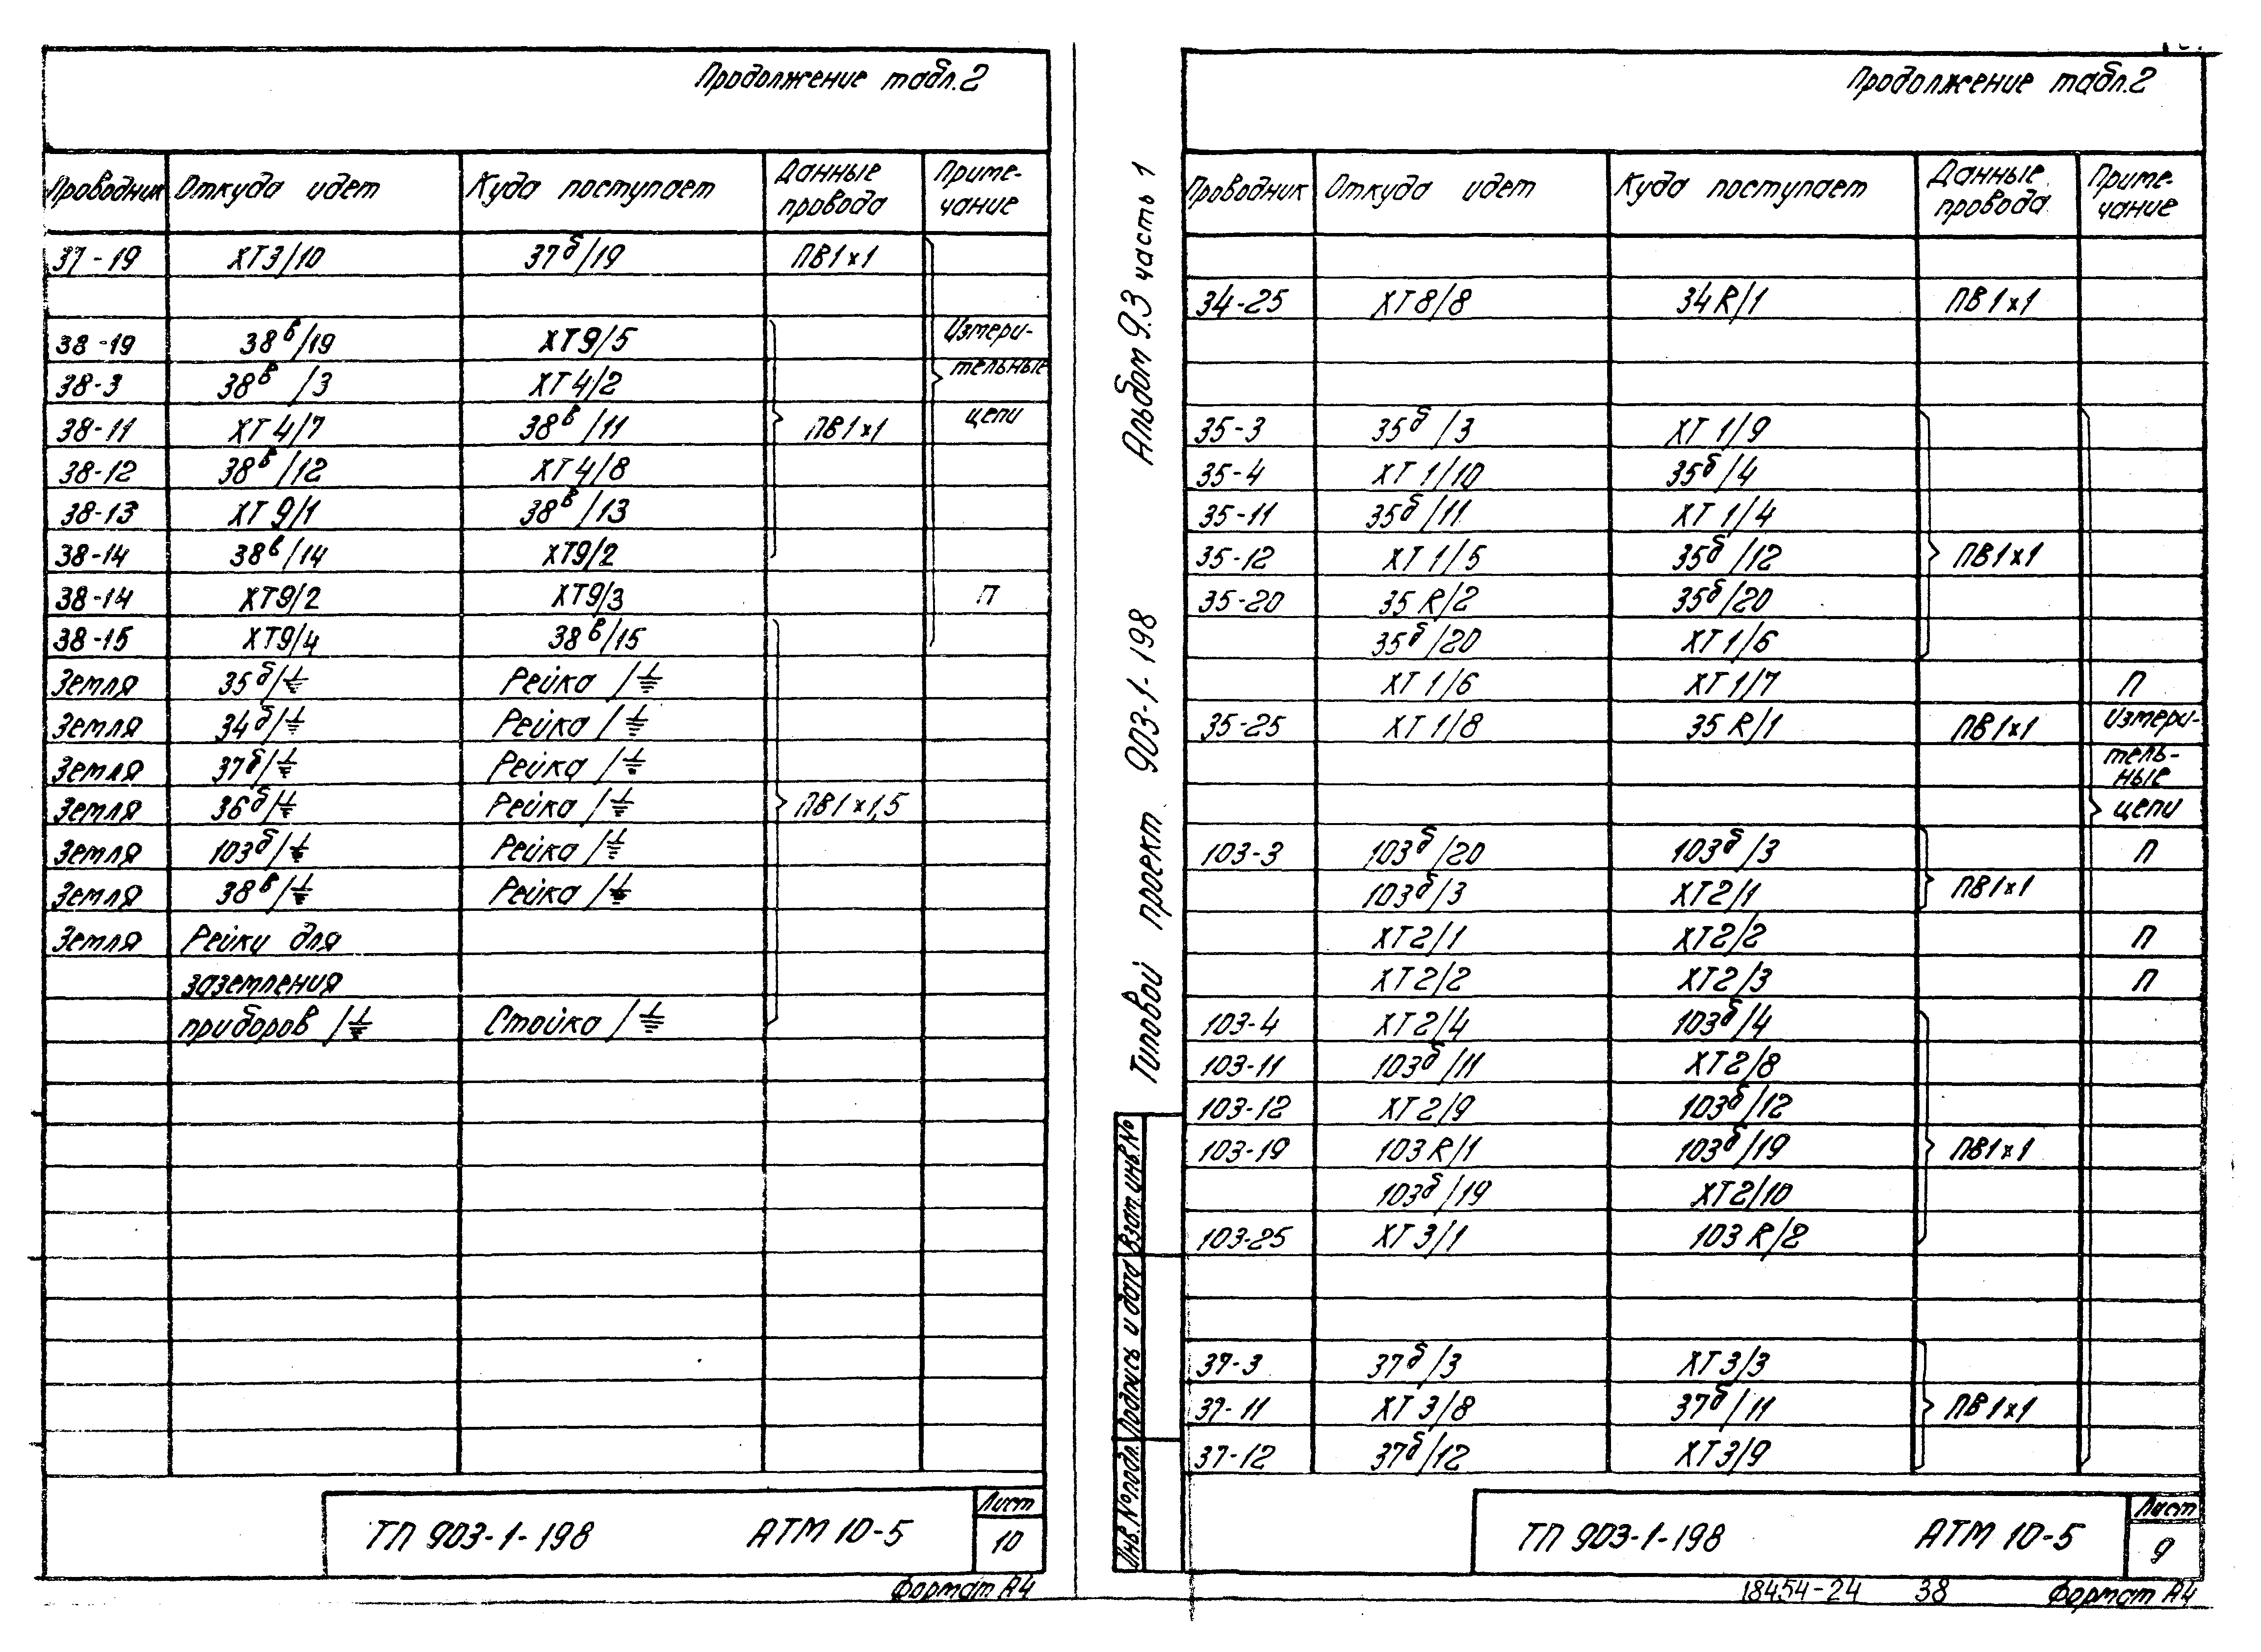 Продолжение табл.2
Проводник Откуда идет Куда поступает Данные провода Приме-чание
37-19 ХТ3/10 37б/19 ПВ1×1
38-19 38в/19 ХТ9/5 Измери-
38-3 38в/3 ХТ4/2 тельные
38-11 ХТ4/7 38в/11 ПВ1×1 цепи
38-12 38в/12 ХТ4/8
38-13 ХТ9/1 38в/13
38-14 38в/14 ХТ9/2
38-14 ХТ9/2 ХТ9/3 П
38-15 ХТ9/4 38в/15
Земля 35б/⏚ Рейка/⏚
Земля 34б/⏚ Рейка/⏚
Земля 37б/⏚ Рейка/⏚
Земля 36б/⏚ Рейка/⏚ ПВ1×1,5
Земля 103б/⏚ Рейка/⏚
Земля 38в/⏚ Рейка/⏚
Земля Рейки для
заземления
приборов/⏚ Стойка/⏚
ТП 903-1-198 АТМ 10-5 Лист 10
Формат А4
Типовой проект 903-1-198 Альбом 9.3 часть 1
Инв.№подл. Подпись и дата Взам.инв.№
Продолжение табл.2
Проводник Откуда идет Куда поступает Данные провода Приме-чание
34-25 ХТ8/8 34R/1 ПВ1×1
35-3 35б/3 ХТ1/9
35-4 ХТ1/10 35б/4
35-11 35б/11 ХТ1/4
35-12 ХТ1/5 35б/12 ПВ1×1
35-20 35R/2 35б/20
35б/20 ХТ1/6
ХТ1/6 ХТ1/7 П
35-25 ХТ1/8 35R/1 ПВ1×1 Измери-
тель-
ные
цепи
103-3 103б/20 103б/3 П
103б/3 ХТ2/1 ПВ1×1
ХТ2/1 ХТ2/2 П
ХТ2/2 ХТ2/3 П
103-4 ХТ2/4 103б/4
103-11 103б/11 ХТ2/8
103-12 ХТ2/9 103б/12
103-19 103R/1 103б/19 ПВ1×1
103б/19 ХТ2/10
103-25 ХТ3/1 103R/2
37-3 37б/3 ХТ3/3
37-11 ХТ3/8 37б/11 ПВ1×1
37-12 37б/12 ХТ3/9
ТП 903-1-198 АТМ 10-5 Лист 9
18454-24 38 Формат А4